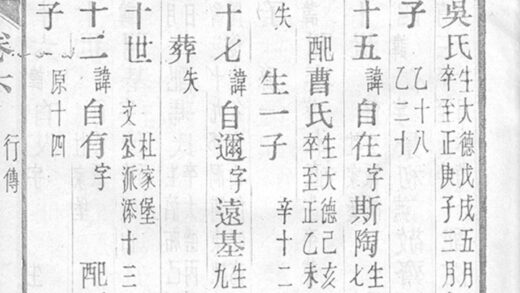 吳氏生大德戊戌五月
卒至正庚子三月
子乙十八
乙二十
十五諱自在字斯陶生
七
配曹氏生大德己亥
卒至正乙未
失 生一子 辛十二
十七諱自邇字遠基生
九
葬失
十世 杜家堡
文公派添十三
十二諱自有字 配
子 原十四
卷六 行傳